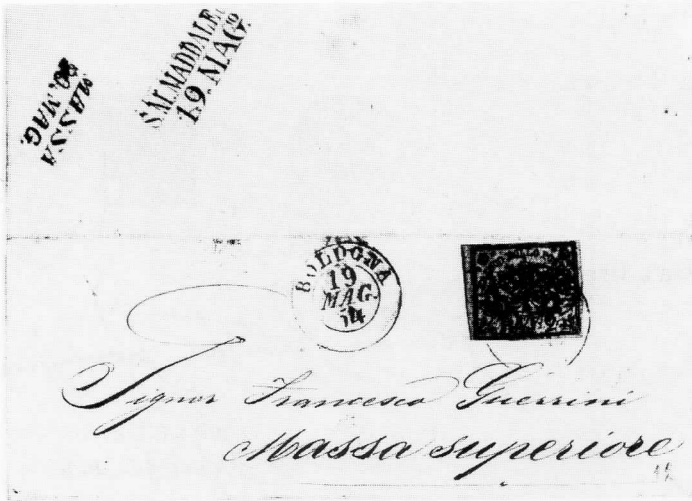 MASSA
20. MAG.
S.M. MADDALENA
19. MAG.
BOLOGNA
19
MAG.
54
Signor Francesco Guerrini
Massa superiore